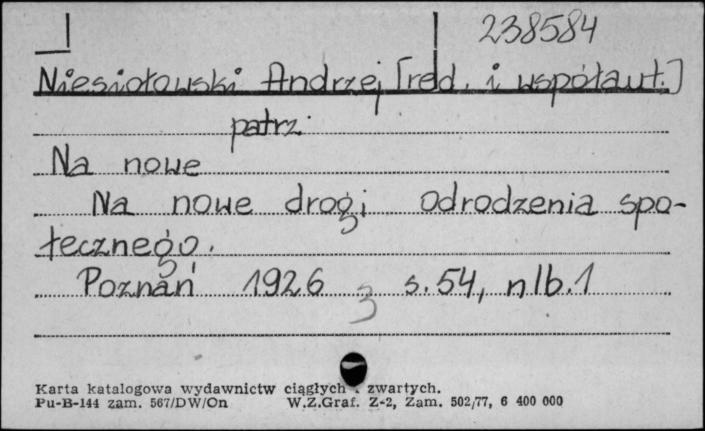 238584
Niesiołowski Andrzej [red. i współaut.]
patrz
Na nowe
Na nowe drogi odrodzenia spo-
łecznego.
Poznań 1926 s. 54, nlb. 1
3
Karta katalogowa wydawnictw ciągłych i zwartych.
Pu-B-144 zam. 567/DW/On W.Z.Graf. Z-2, Zam. 502/77, 6 400 000